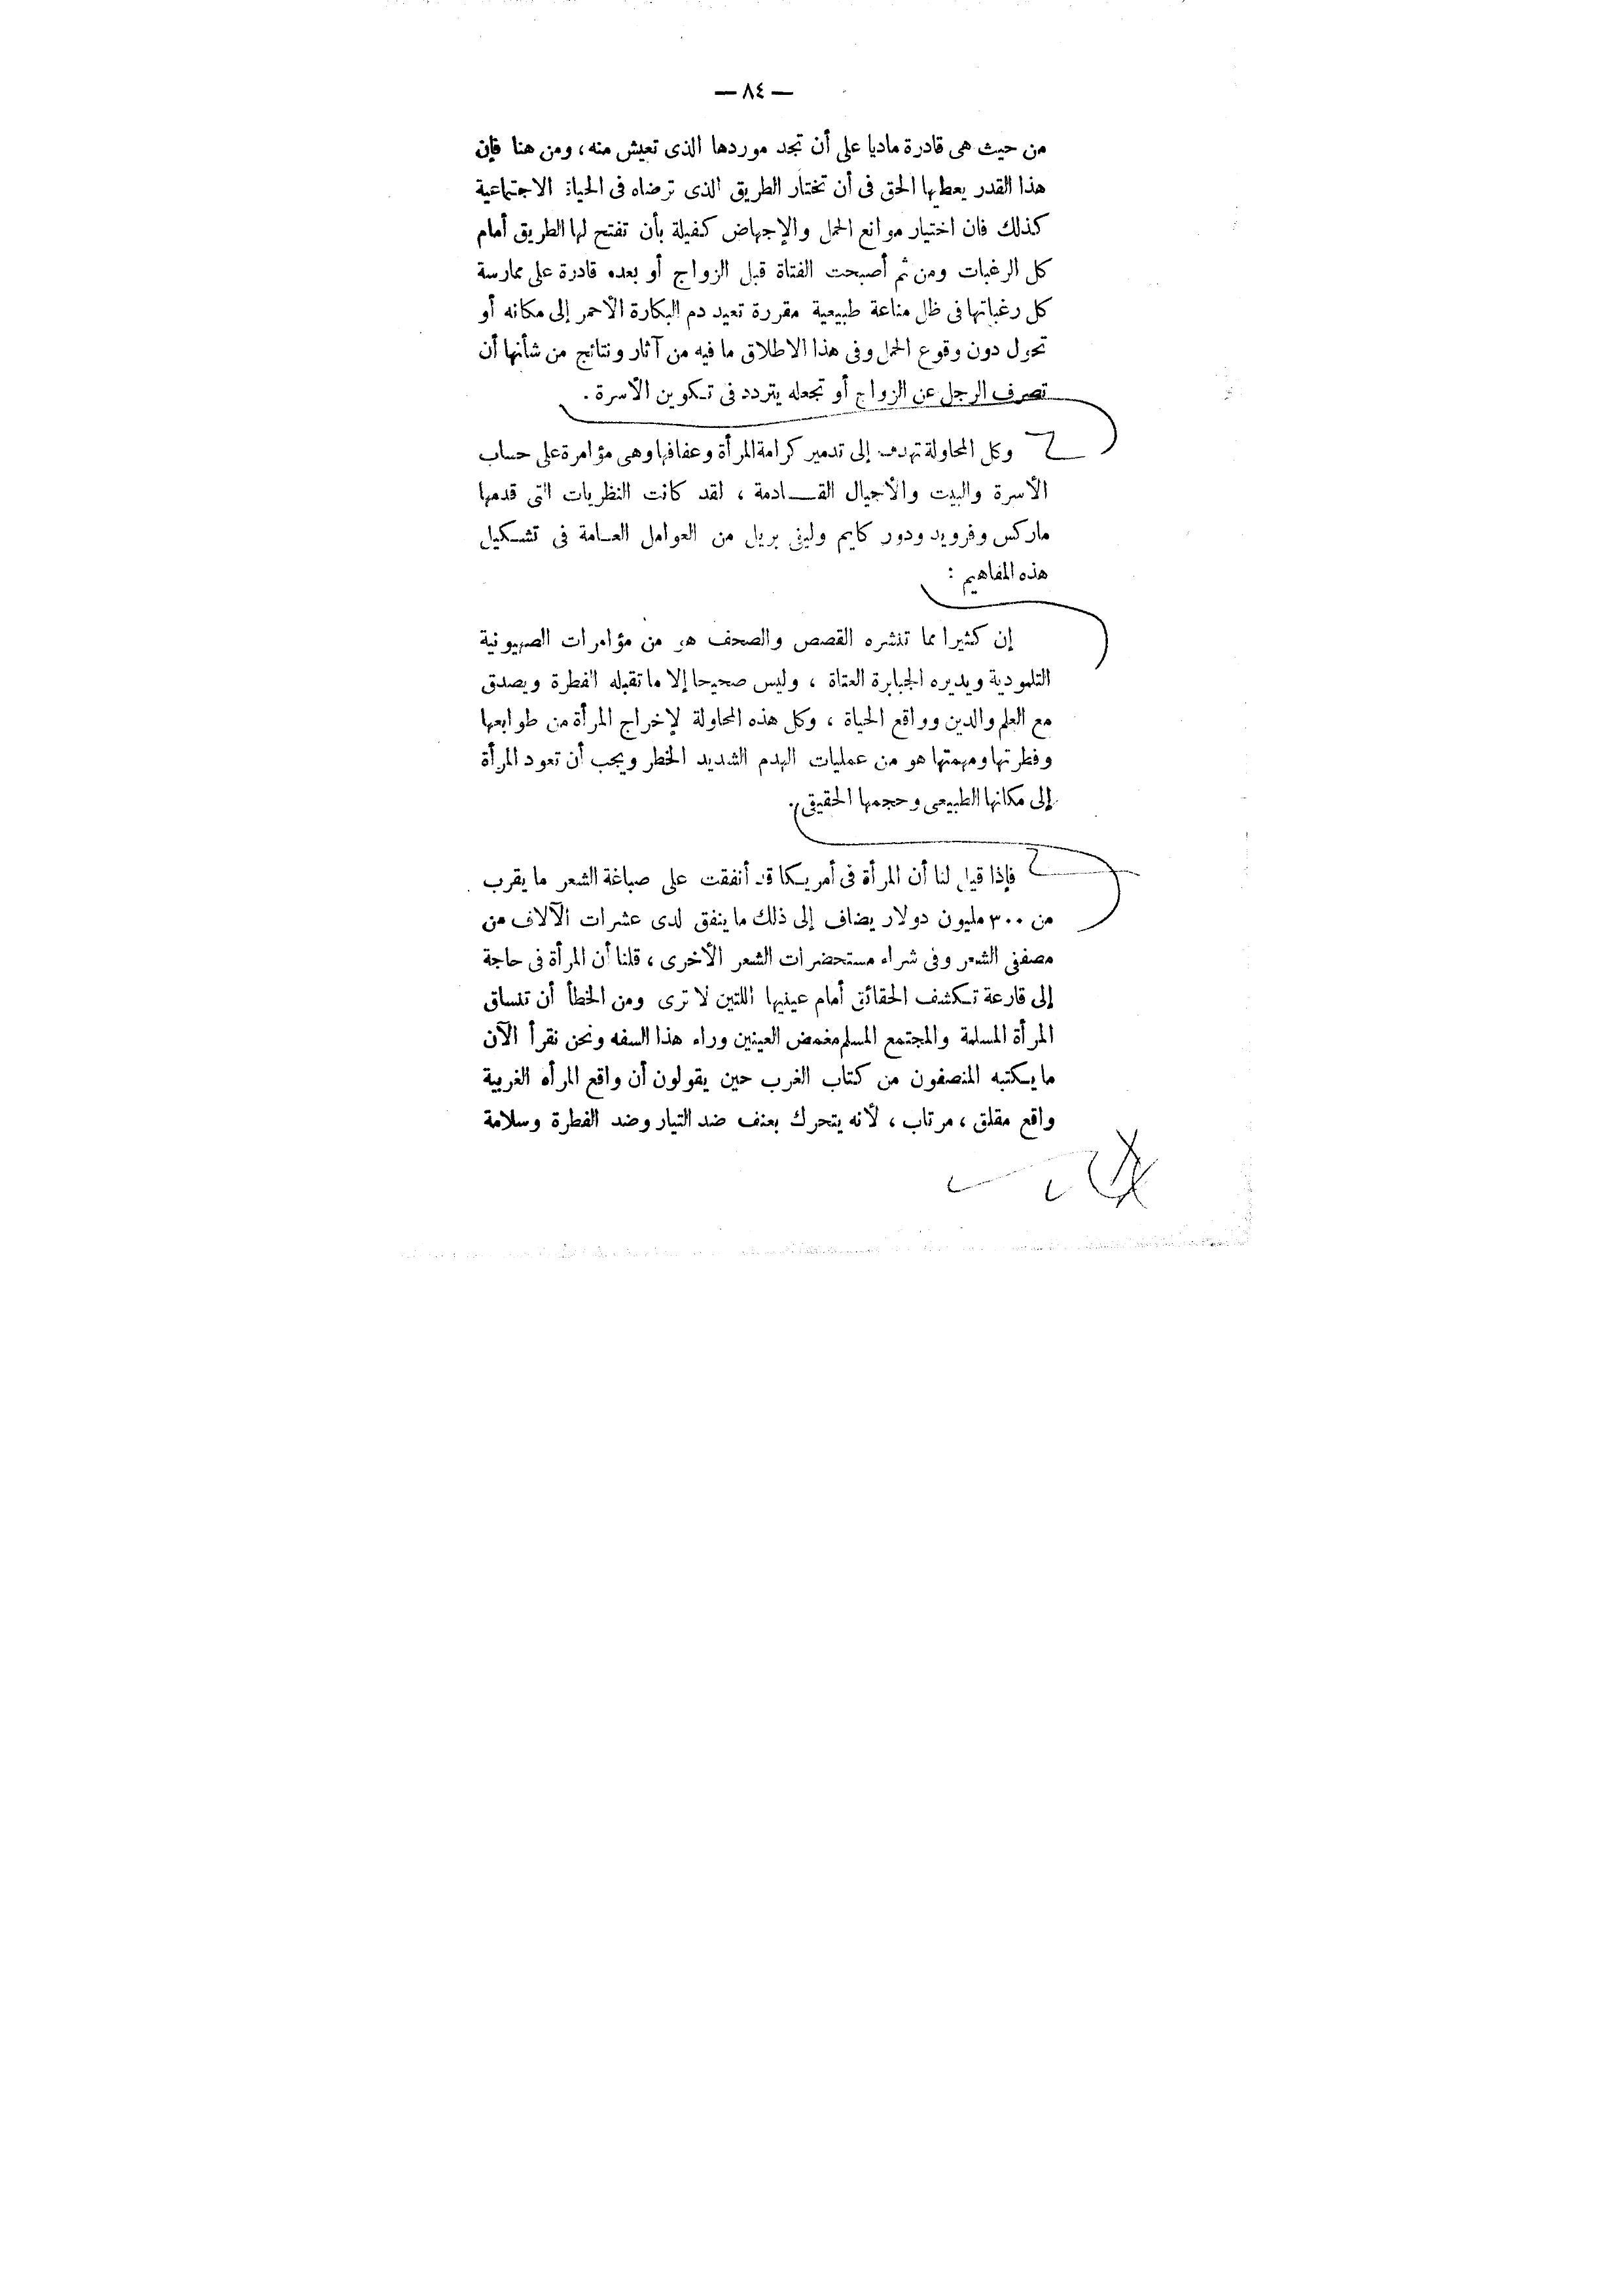 — ٨٤ —
من حيث هى قادرة ماديا على أن تجد موردها الذى تعيش منه، ومن هنا فإن
هذا القدر يعطيها الحق فى أن تختار الطريق الذى ترضاه فى الحياة الاجتماعية
كذلك فان اختيار موانع الحمل والإجهاض كفيلة بأن تفتح لها الطريق أمام
كل الرغبات ومن ثم أصبحت الفتاة قبل الزواج أو بعده قادرة على ممارسة
كل رغباتها فى ظل مناعة طبيعية مقررة تعيد دم البكارة الأحمر إلى مكانه أو
تحول دون وقوع الحمل وفى هذا الاطلاق ما فيه من آثار ونتائج من شأنها أن
تصرف الرجل عن الزواج أو تجعله يتردد فى تكوين الأسرة .
وكل المحاولة تهدف إلى تدمير كرامة المرأة وعفافها وهى مؤامرة على حساب
الأسرة والبيت والأجيال القادمة ، لقد كانت النظريات التى قدمها
ماركس وفرويد ودور كايم وليفى بريل من العوامل العامة فى تشكيل
هذه المفاهيم :
إن كثيرا مما تنشره القصص والصحف هو من مؤامرات الصهيونية
التلمودية ويديره الجبابرة العتاة ، وليس صحيحا إلا ما تقبله الفطرة ويصدق
مع العلم والدين وواقع الحياة ، وكل هذه المحاولة لإخراج المرأة من طوابعها
وفطرتها ومهمتها هو من عمليات الهدم الشديد الخطر ويجب أن تعود المرأة
إلى مكانها الطبيعى وحجمها الحقيقى .
فإذا قيل لنا أن المرأة فى أمريكا قد أنفقت على صباغة الشعر ما يقرب
من ٣٠٠ مليون دولار يضاف إلى ذلك ما ينفق لدى عشرات الآلاف من
مصففى الشعر وفى شراء مستحضرات الشعر الأخرى ، قلنا أن المرأة فى حاجة
إلى قارعة تكشف الحقائق أمام عينيها اللتين لا ترى ومن الخطأ أن تنساق
المرأة المسلمة والمجتمع المسلم مغمض العينين وراء هذا السفه ونحن نقرأ الآن
ما يكتبه المنصفون من كتاب الغرب حين يقولون أن واقع المرأه الغربية
واقع مقلق ، مرتاب ، لأنه يتحرك بعنف ضد التيار وضد الفطرة وسلامة